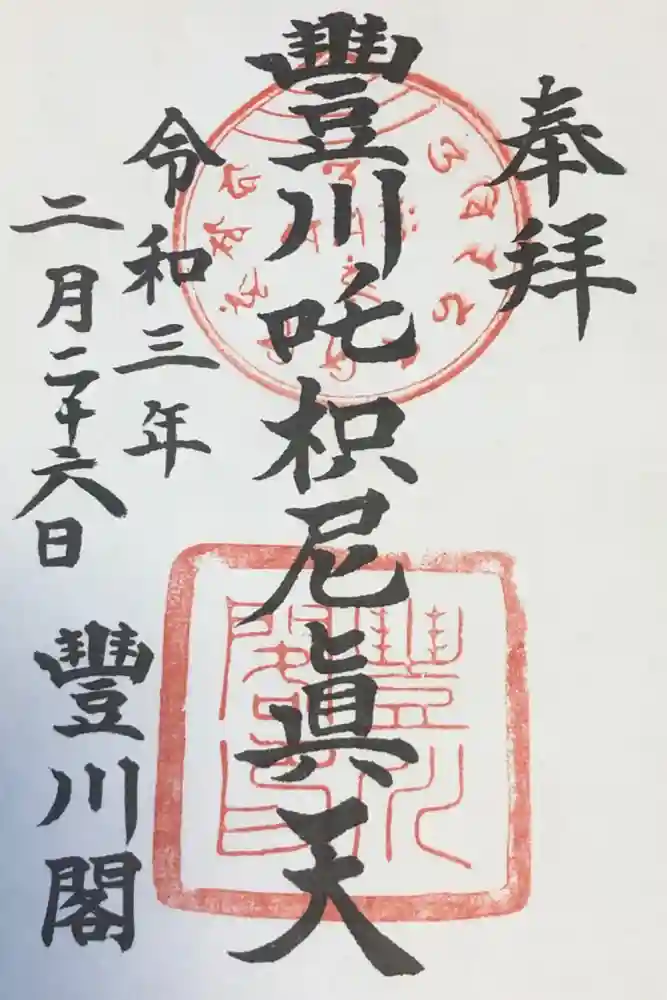 奉拝
豐川吒枳尼眞天
令和三年
二月二十六日
豐川閣
豐川閣印